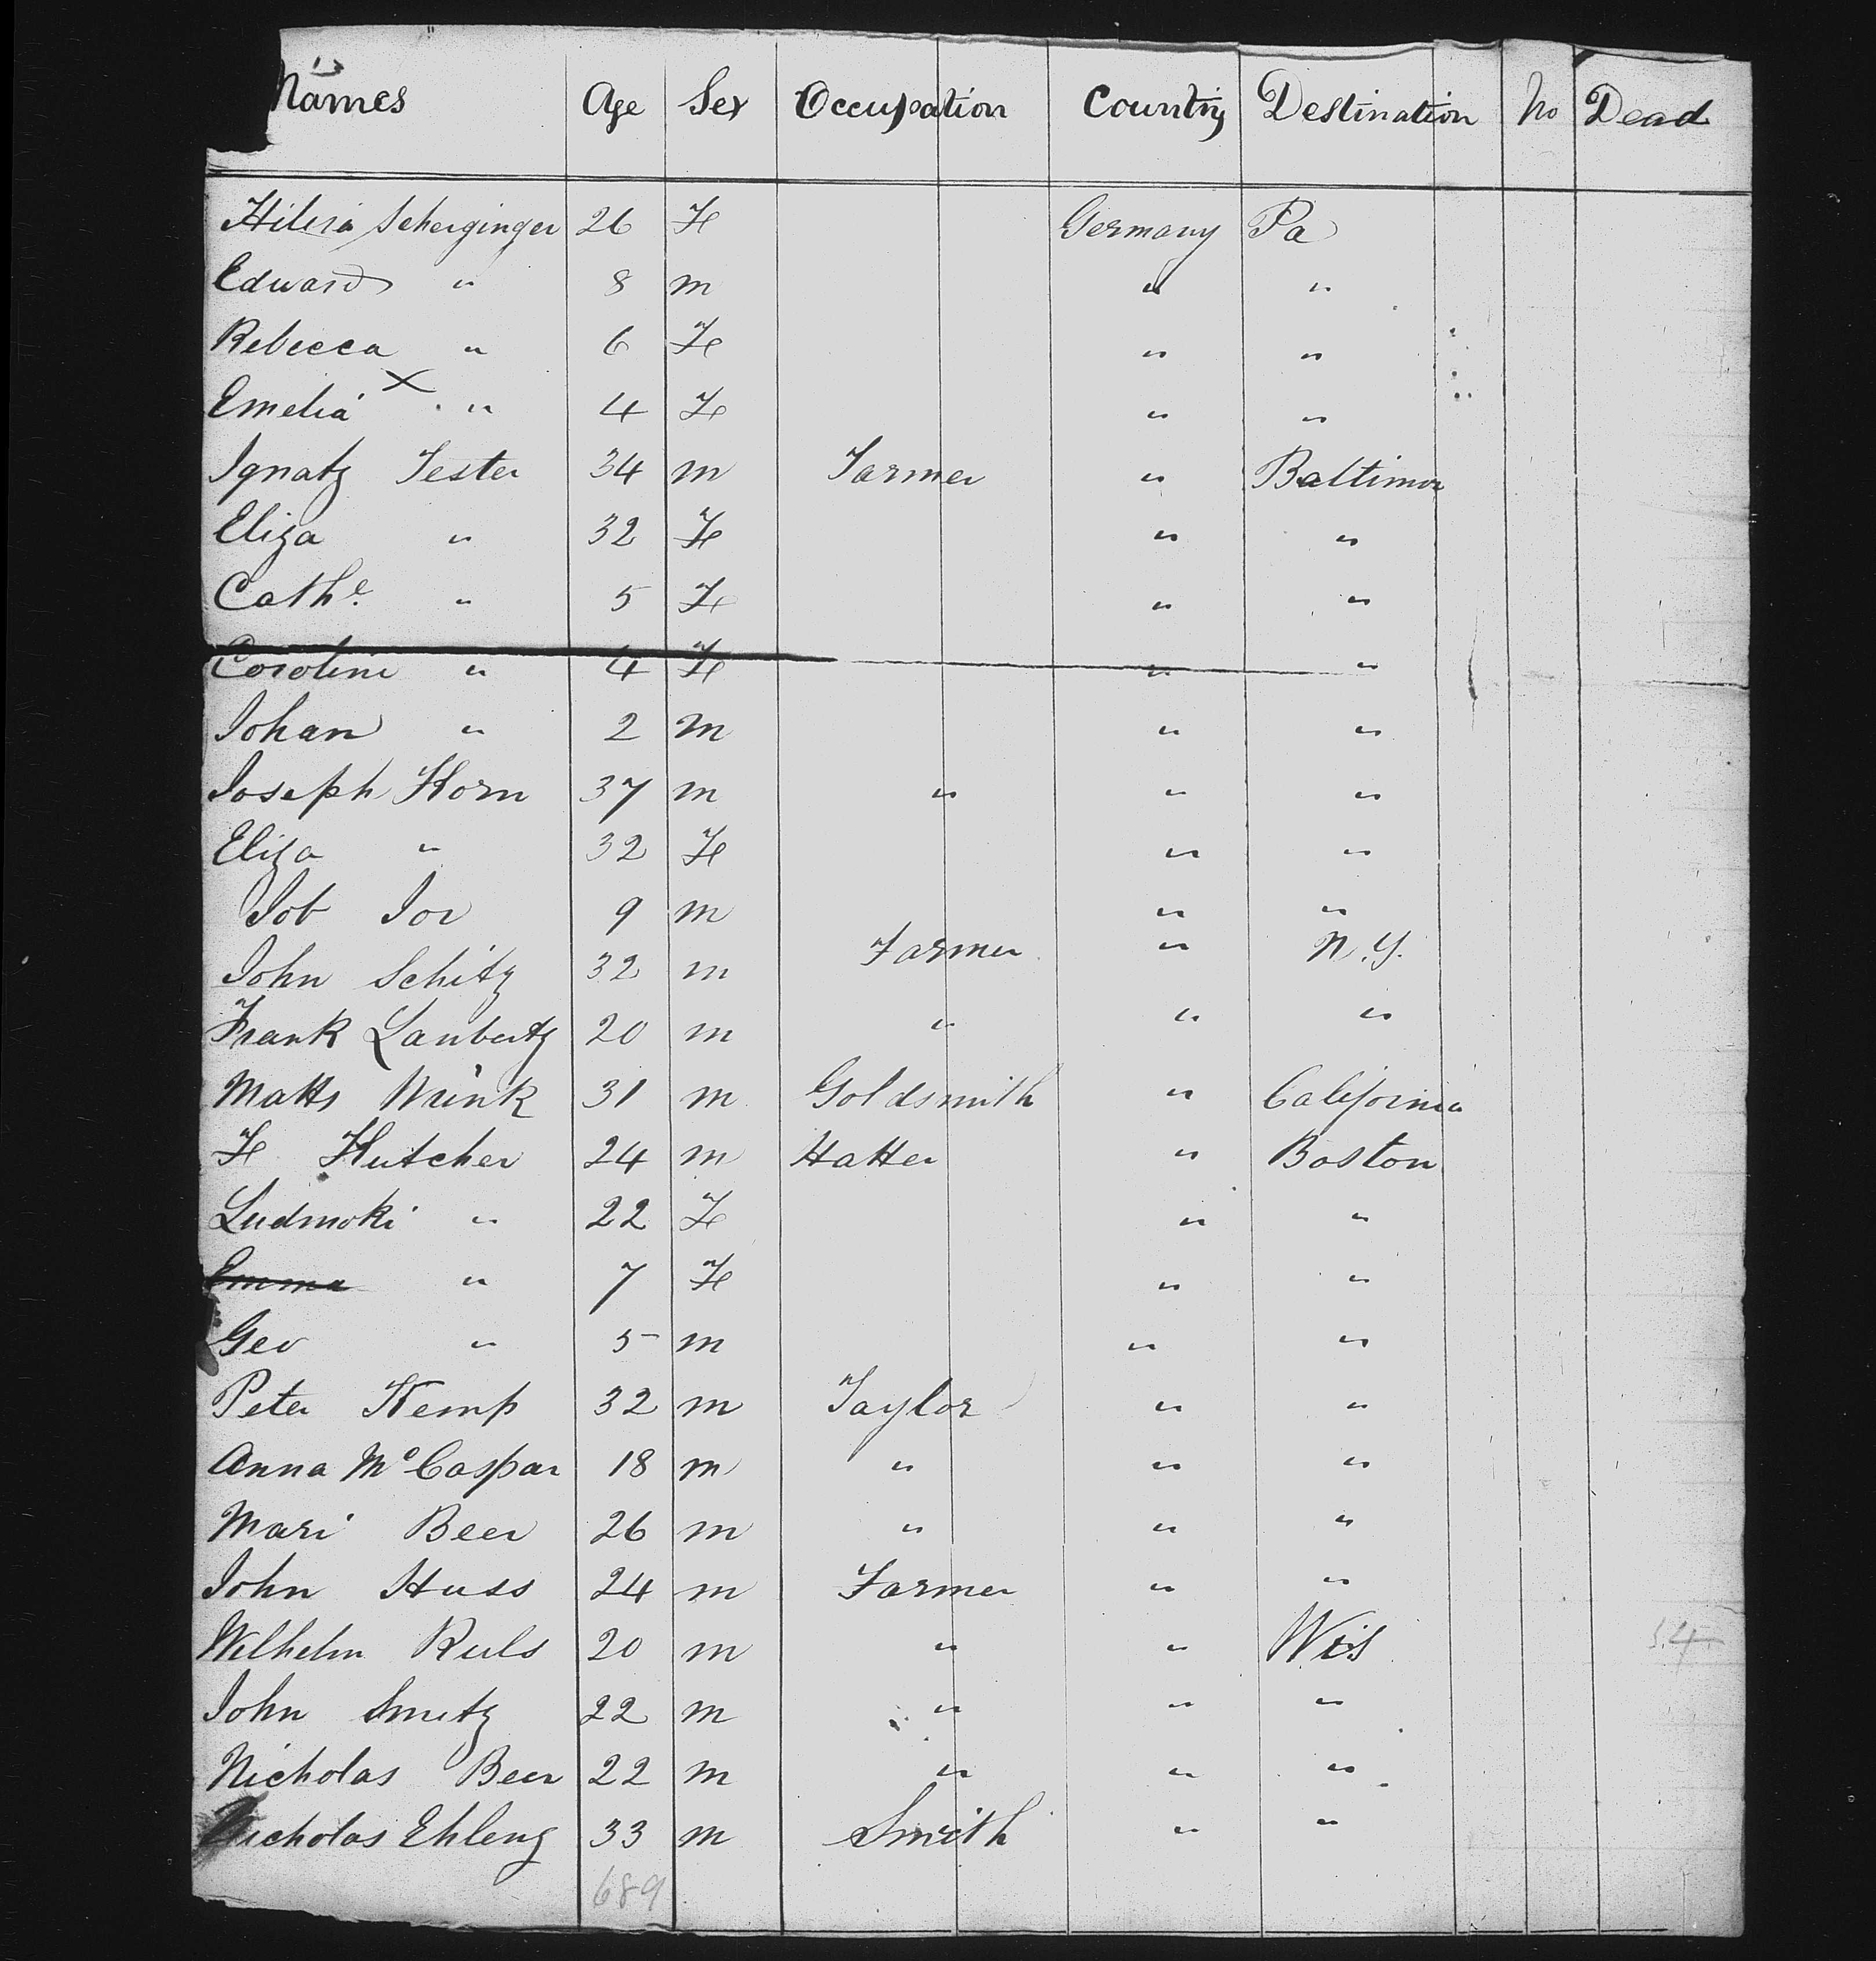 Names Age Sex Occupation Country Destination No Dead
Hilria Scherginger 26 F Germany Pa
Edward " 8 m " "
Rebecca " 6 F " "
Emelia X " 4 F " "
Ignatz Tester 34 m Farmer " Baltimor
Eliza " 32 F " "
Cathe. " 5 F " "
Caroline " 4 F " "
Johan " 2 m " "
Joseph Horn 37 m " " "
Eliza " 32 F " "
Job Jor 9 m " "
John Schitz 32 m Farmer " N.Y.
Frank Lambertz 20 m " " "
Matts Wrink 31 m Goldsmith " California
F Hutcher 24 m Hatter " Boston
Ludmoki " 22 F " "
Emma " 7 F " "
Geo " 5 m " "
Peter Kemp 32 m Taylor " "
Anna Mc Caspar 18 m " " "
Mari Beer 26 m " " "
John Huss 24 m Farmer " "
Wilhelm Ruls 20 m " " Wis
John Smitz 22 m " " "
Nicholas Beer 22 m " " "
Nicholas Ehleng 33 m Smith " "
689